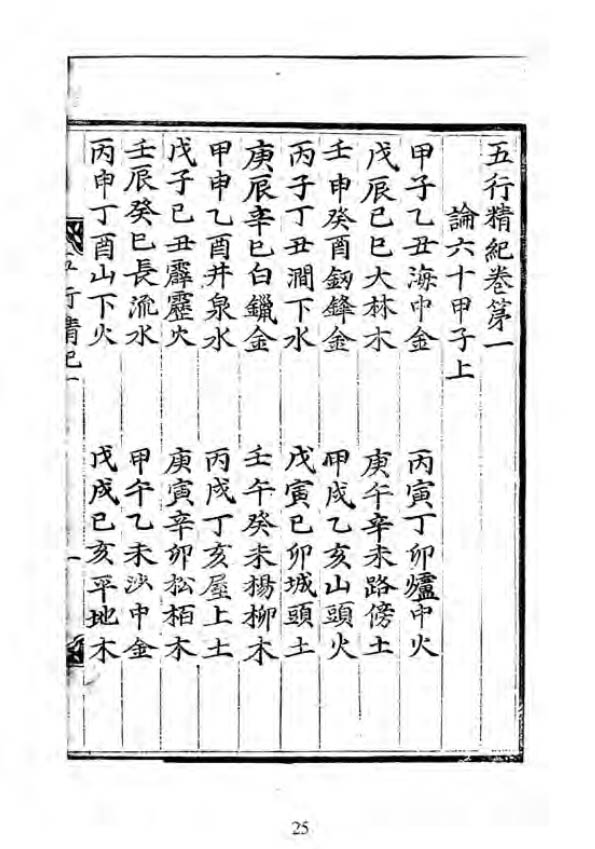 五行精紀卷第一
論六十甲子上
甲子乙丑海中金 丙寅丁卯爐中火
戊辰己巳大林木 庚午辛未路傍土
壬申癸酉釼鋒金 甲戌乙亥山頭火
丙子丁丑澗下水 戊寅己卯城頭土
庚辰辛巳白鑞金 壬午癸未楊柳木
甲申乙酉井泉水 丙戌丁亥屋上土
戊子己丑霹靂火 庚寅辛卯松栢木
壬辰癸巳長流水 甲午乙未沙中金
丙申丁酉山下火 戊戌己亥平地木
五行精紀一
一
25